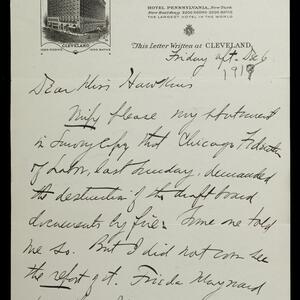 HOTEL PENNSYLVANIA, New York
THE LARGEST HOTEL IN THE WORLD
CLEVELAND
This Letter Written at CLEVELAND
Friday aft. Dec 6
1918
Dear Miss Hawkins
Nify please my statement
in Survey Copy that Chicago Federation
of Labor, last Sunday, demanded
the destruction of the draft board
documents by fire. Some one told
me so. But I did not see
the report of it. Frieda Maynard